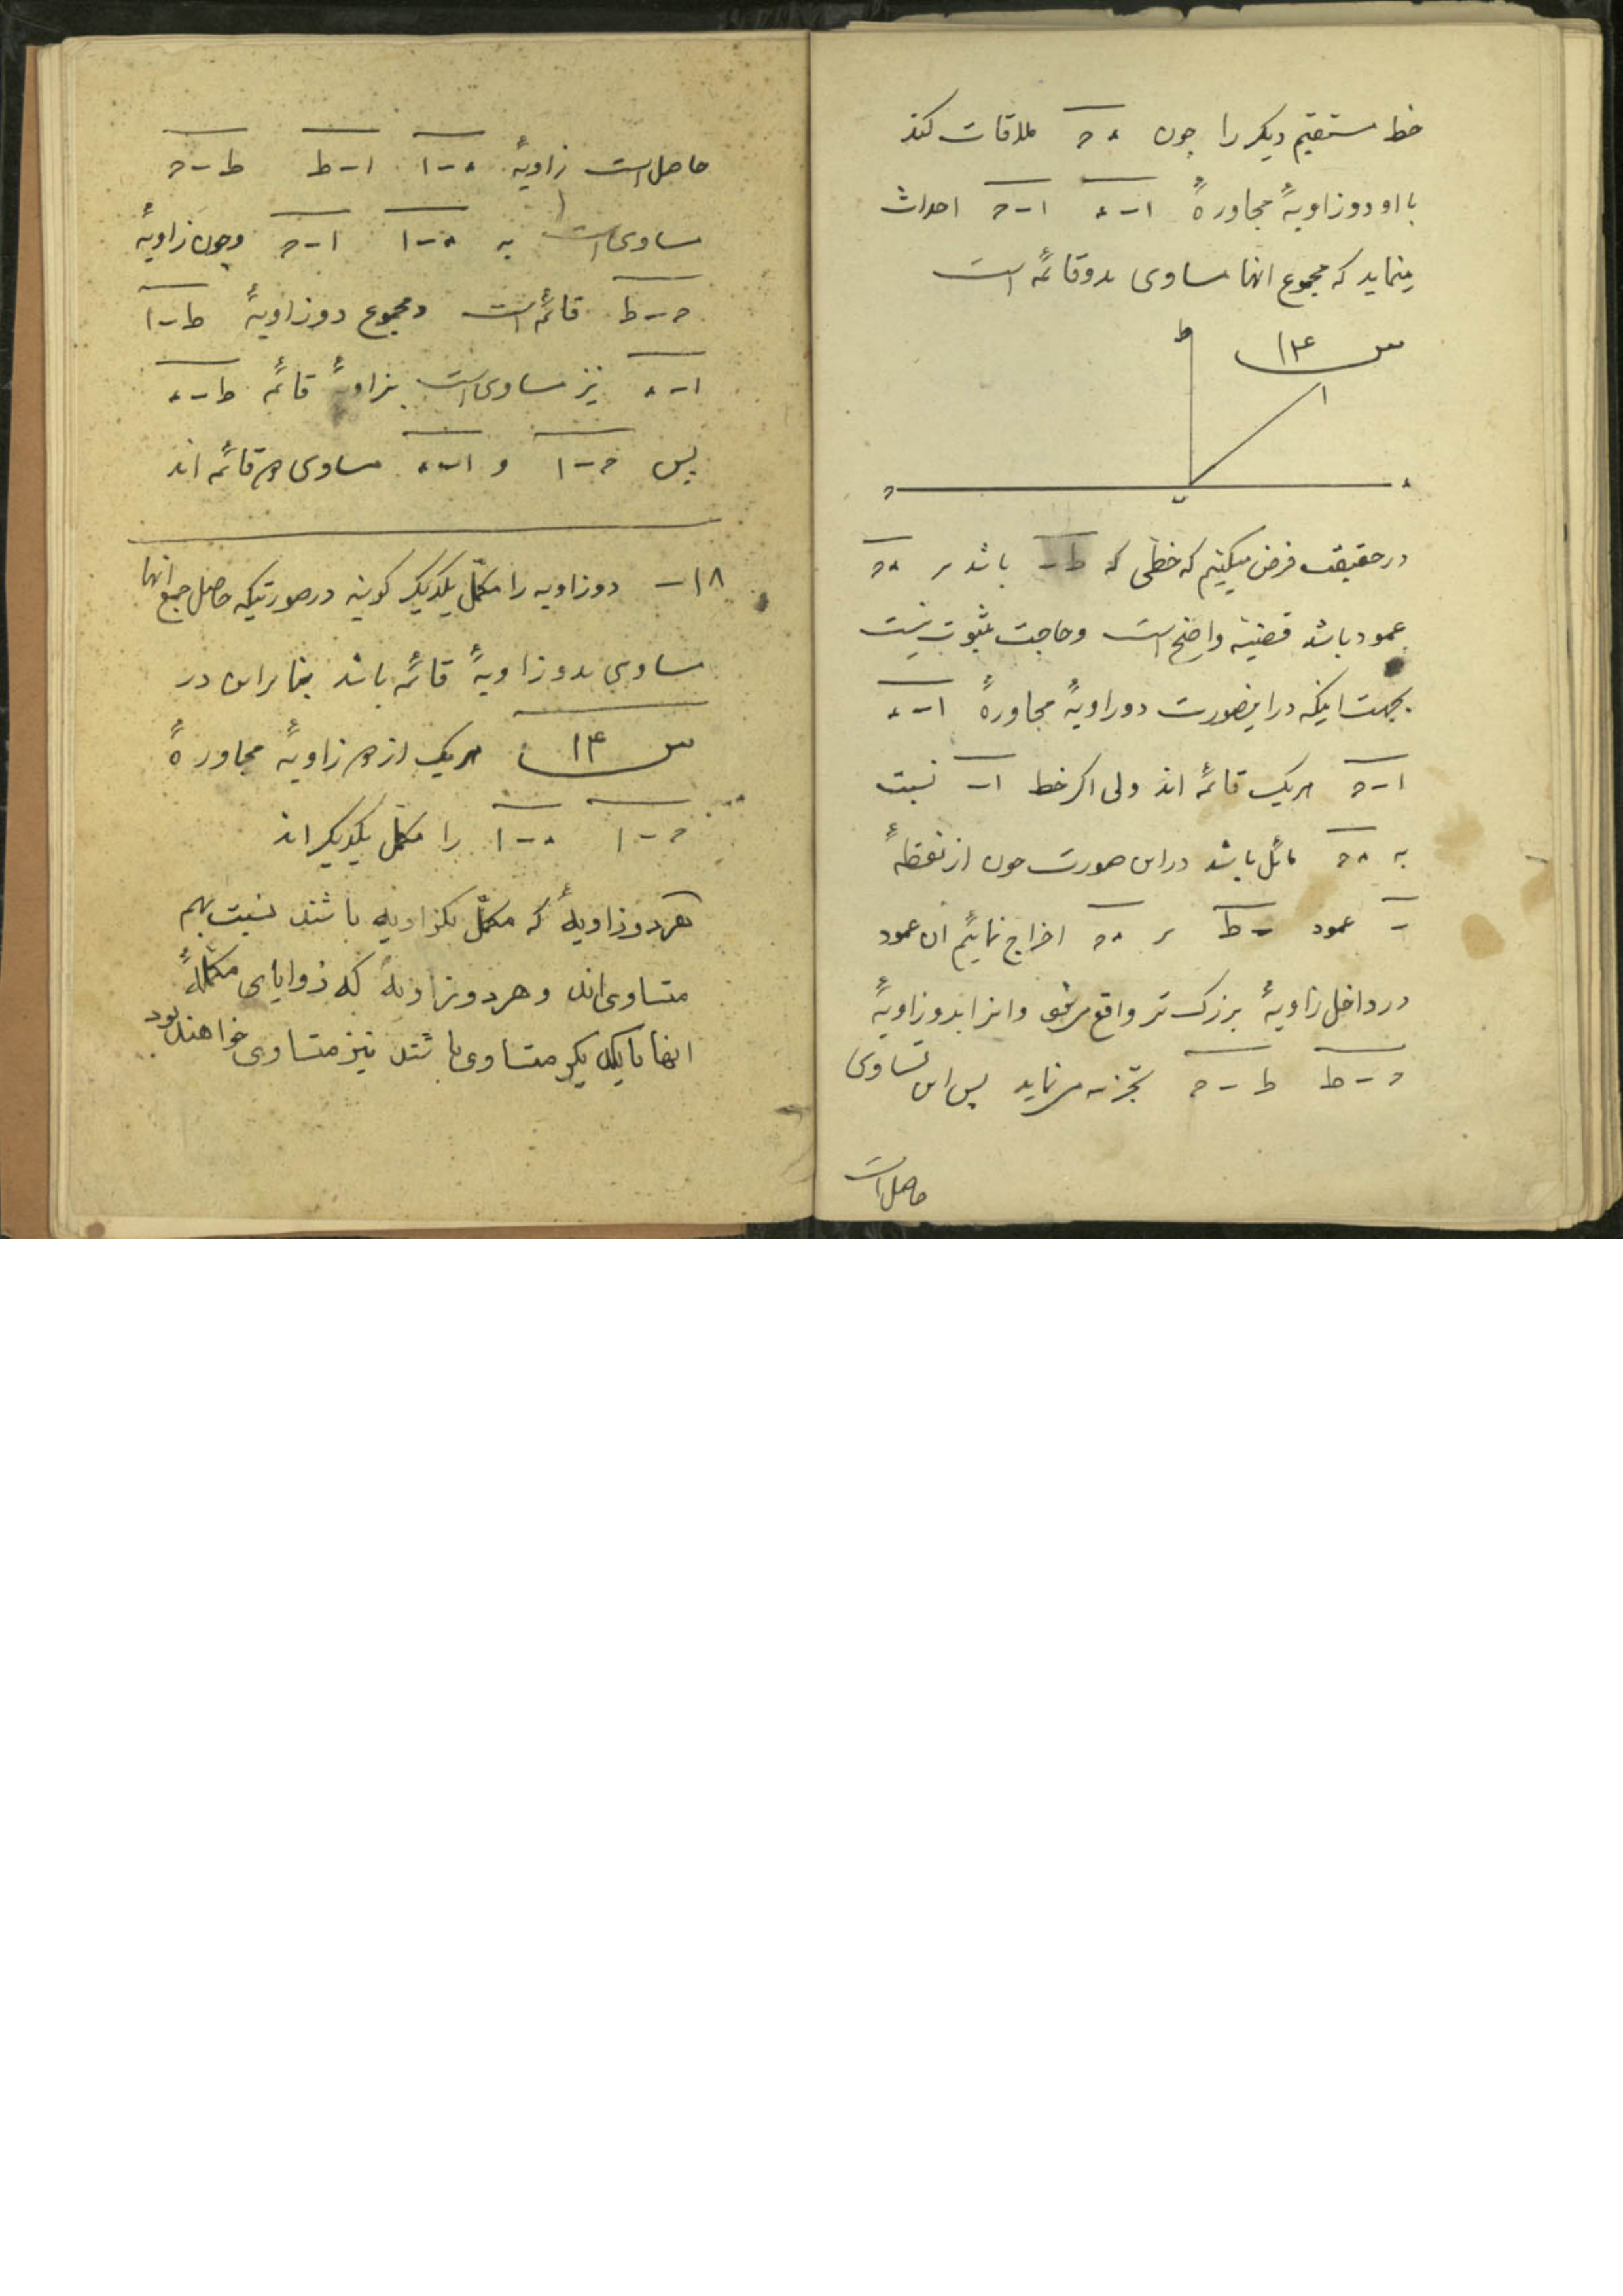 خط مستقیم دیکر را چون ء ح ملاقات کند
با او دو زاویهٔ مجاورهٔ ا ٮ ء ا ٮ ح احداث
مینماید که مجموع انها مساوی بدو قائمه است
س ۱۴
ط
ا
ح
ٮ
ء
در حقیقت فرض میکنیم که خطی که ط ٮ باشد بر ء ح
عمود باشد قضیه واضح است و حاجت بثبوت نیست
بجهت اینکه در اینصورت دو زاویهٔ مجاورهٔ ا ٮ ء
ا ٮ ح هریک قائمه اند ولی اکر خط ا ٮ نسبت
به ء ح مائل باشد در این صورت چون از نقطهٔ
ٮ عمود ٮ ط بر ء ح اخراج نمائیم ان عمود
در داخل زاویهٔ بزرک تر واقع میشود و انرا بدو زاویهٔ
ء ٮ ط ط ٮ ح تجزیه مینماید پس این تساوی
حاصل است
حاصل است زاویهٔ ء ٮ ا ا ٮ ط ط ٮ ح
مساوی است به ء ٮ ا ا ٮ ح و چون زاویهٔ
ح ٮ ط قائمه است و مجموع دو زاویهٔ ط ٮ ا
ا ٮ ء نیز مساوی است بزاویهٔ قائمه ط ٮ ء
پس ح ٮ ا و ا ٮ ء مساوی دو قائمه اند
۱۸ – دو زاویه را مکمّل یکدیکر کویند در صورتیکه حاصل جمع انها
مساوی بدو زاویهٔ قائمه باشد بنابراین در
س ۱۴ هریک از دو زاویهٔ مجاورهٔ
ح ٮ ا ء ٮ ا را مکمّل یکدیکر اند
هر دو زاویهٔ که مکمّل یکزاویه باشند نسبت بهم
متساوی اند و هر دو زاویهٔ که زوایای مکمّلهٔ
انها با یکدیکر متساوی باشند نیز متساوی خواهند بود